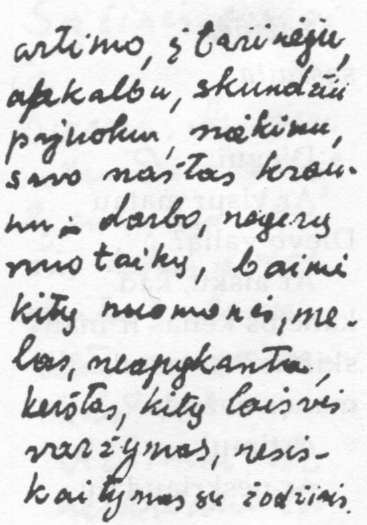 artimo, įtarinėjų,
apkalbų, skundžių
pajuokų, naikinu,
savo naštas krau-
nu darbo, negerų
nuotaikų, baimė
kitų nuomonei, me-
las, neapykanta,
kerštas, kitų laisvės
varžymas, nesis-
kaitymas su žodžiais.